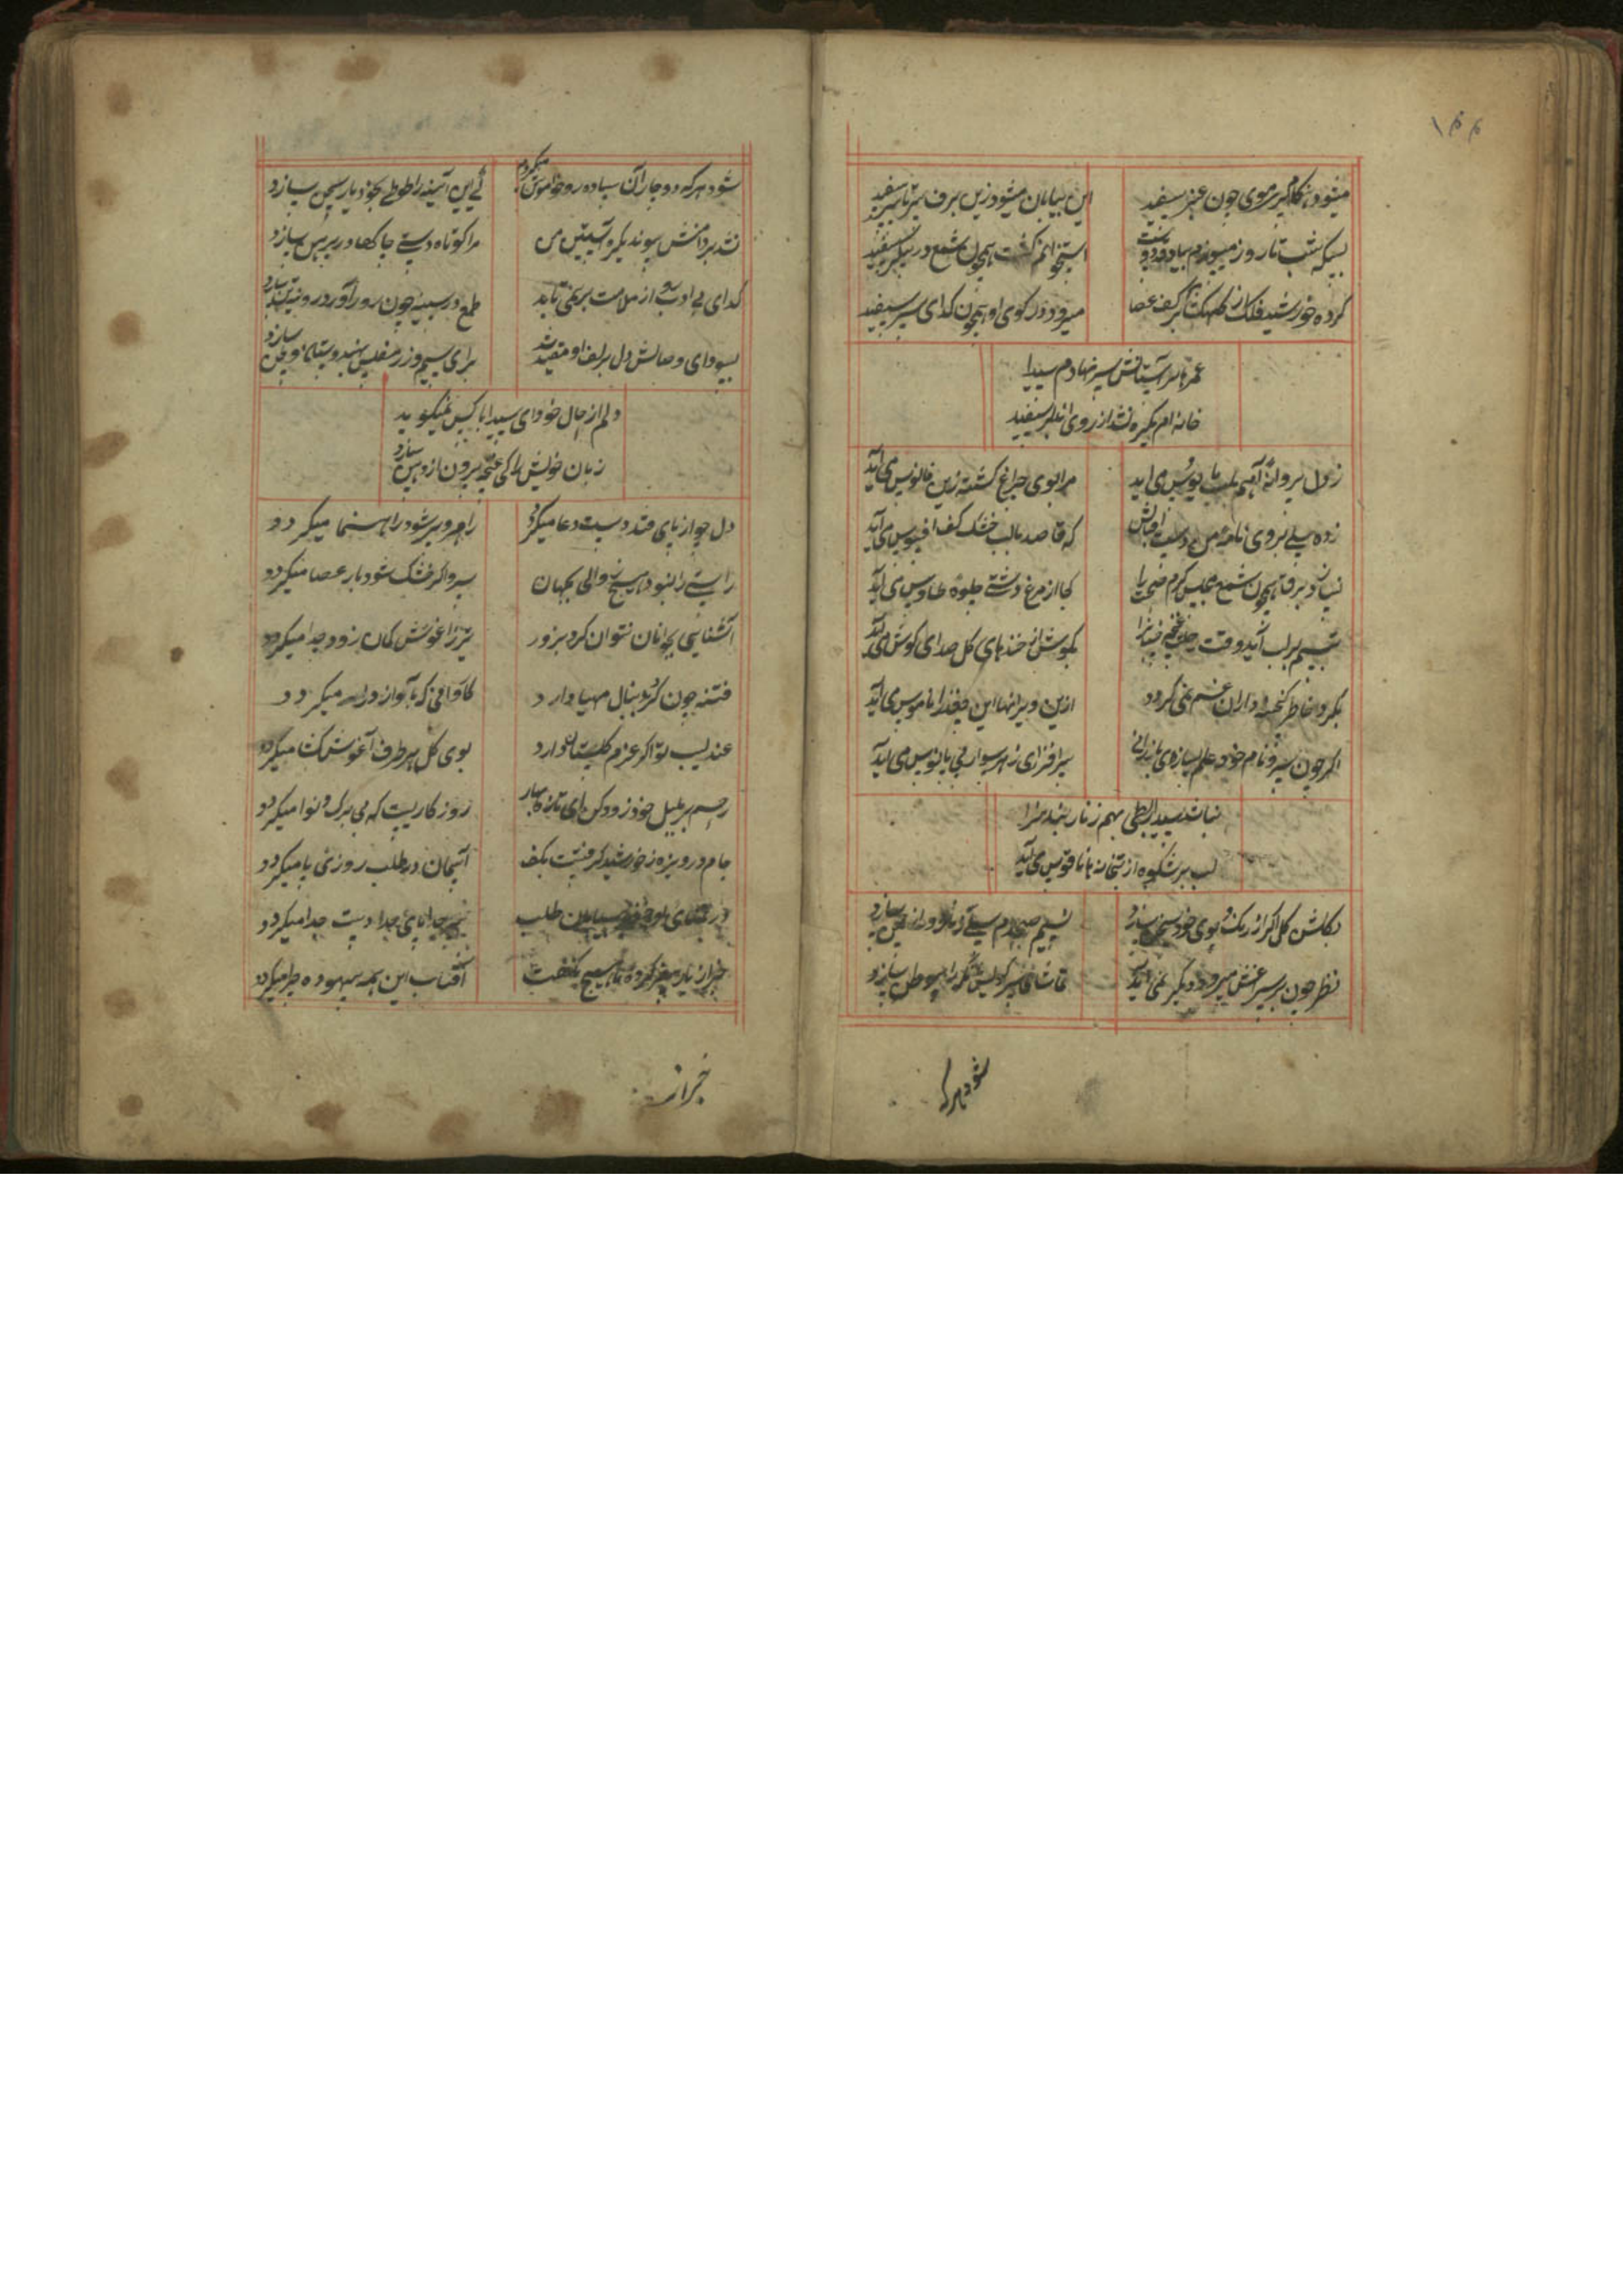 ۱۴۴
میشود هنگام پیری موی چون عنبر سفید
این بیابان میشود زین برف سر تا سر سفید
بسکه شب تا روز میسوزم بیاد دوست
استخوانم گشت همچون شمع در پیکر سفید
کرده خورشید فلک از کهکشان بر کف عصا
میرود در کوی او همچون گدای سر سفید
عمرها بر آستانش سر نهادم سیدا
خانه ام یکره نشد از روی آن دلبر سفید
ز دل پروانه آهم بلب مایوس می آید
مرا بوی چراغ کشته زین فانوس می آید
زده سیلی بروی نامه من دست
که قاصد با لب خشک و کف افسوس می آید
همچون شمع مجلس گرم صحبت را
کجا از مرغ دشتی جلوه طاوس می آید
تبسم بر لب آید وقت
بگوش از خندهای گل صدای کوس می آید
بگرد خاطر گنجینه داران غم نمی گردد
ازین ویرانها این چغد را ناموس می آید
اگر چون سرو نام خود علم سازی
سرافرازی ز هر سو از پی پابوس می آید
نباشد سیدا ربطی بهم زنار بندان را
لب پر شکوه از بتخانه ها ناقوس می آید
بگلشن گل اگر از رنگ و بوی خود سخن سازد
نسیم صبحدم سیلی زنان دور از چمن سازد
نظر چون بر سر زلفش رود دیگر نمی آید
تماشا
شود هر که
شود هر که دوچار آن ساده رو خاموش میگردد
نی این آیینه را طوطی بخود یار سخن سازد
نشد بر دامنش پیوند یکره آستین من
مرا کوتاه دستی چاکها در پیرهن سازد
گدای بی ادب رو از ملامت بر نمی تابد
طمع در سینه چون رو آورد
بسودای وصالش دل بزلف او مقید شد
برای سیم و زر مفلس بهندوستان وطن سازد
دلم از حال خود ای سیدا با کس نمیگوید
زبان خویش را کی غنچه بیرون از دهن سازد
دل چو از پای فتد دست دعا میگردد
راهرو پیر شود راهنما میگردد
راستی را نبود هیچ زوالی بجهان
سرو اگر خشک شود باز عصا میگردد
آشنایی بجوانان نتوان کرد بزور
تیر ز آغوش کمان زود جدا میگردد
فتنه چون گرد بدنبال مهیا دارد
کاروانی که بآواز درا میگردد
عندلیب تو اگر عزم گلستان دارد
بوی گل هر طرف آغوش گشا میگردد
رحم بر بلبل خود زود کن ای تازه بهار
روزگاریست که بی برگ و نوا میگردد
جام دریوزه ز خورشید گرفتست بکف
آسمان در طلب روزی ما میگردد
در تمنای طلب
جدا پای جدا دست جدا میگردد
خبر از یار سفر کرده ما هیچ نگفت
آفتاب این همه بیهوده چرا میگردد
خبر از